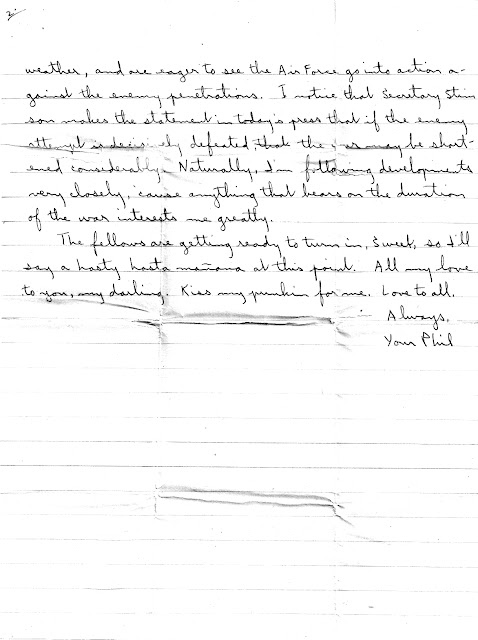 2.
weather, and are eager to see the Air Force go into action a-
gainst the enemy penetrations. I notice that Secretary Stim
son makes the statement in today's press that if the enemy
attempt is decisively defeated, that the war may be short-
ened considerably. Naturally, I'm following developments
very closely, 'cause anything that bears on the duration
of the war interests me greatly.
The fellows are getting ready to turn in, Sweet, so I'll
say a hasty hasta mañana at this point. All my love
to you, my darling. Kiss my punkin for me. Love to all.
Always,
Your Phil